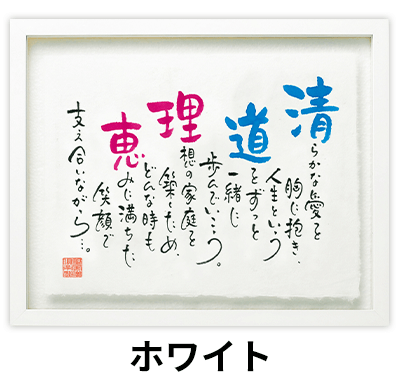 清らかな愛を
胸に抱き、
人生という
道をずっと
一緒に
歩んでいこう。
理想の家庭を
築くため、
どんな時も
恵みに満ちた
笑顔で
支え合いながら…。
ホワイト